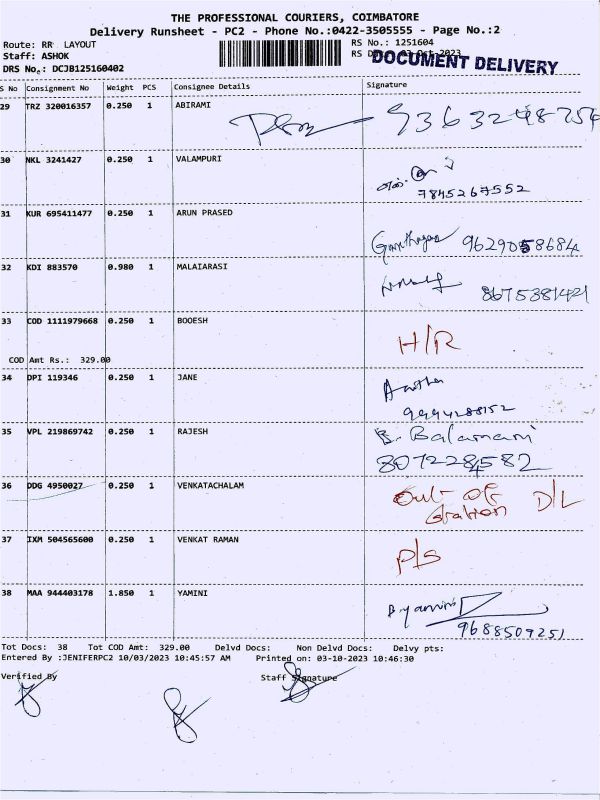 THE PROFESSIONAL COURIERS, COIMBATORE
Delivery Runsheet - PC2 - Phone No.:0422-3505555 - Page No.:2
Route: RR LAYOUT
RS No.: 1251604
Staff: ASHOK
RS D 03 Oct-2023
DOCUMENT DELIVERY
DRS No.: DCJB125160402
S No Consignment No Weight PCS Consignee Details Signature
29 TRZ 320016357 0.250 1 ABIRAMI
30 NKL 3241427 0.250 1 VALAMPURI
7845267552
31 KUR 695411477 0.250 1 ARUN PRASED
9629058684
32 KDI 883570 0.980 1 MALAIARASI
8675381421
33 COD 1111979668 0.250 1 BOOESH
H/R
COD Amt Rs.: 329.00
34 DPI 119346 0.250 1 JANE
9994288152
35 VPL 219869742 0.250 1 RAJESH
B. Balamani
8072284582
36 DDG 4950027 0.250 1 VENKATACHALAM
Out of D/L
station
37 IXM 504565600 0.250 1 VENKAT RAMAN
P/S
38 MAA 944403178 1.850 1 YAMINI
B.yamini
9688509251
Tot Docs: 38 Tot COD Amt: 329.00 Delvd Docs: Non Delvd Docs: Delvy pts:
Entered By :JENIFERPC2 10/03/2023 10:45:57 AM Printed on: 03-10-2023 10:46:30
Verified By Staff Signature